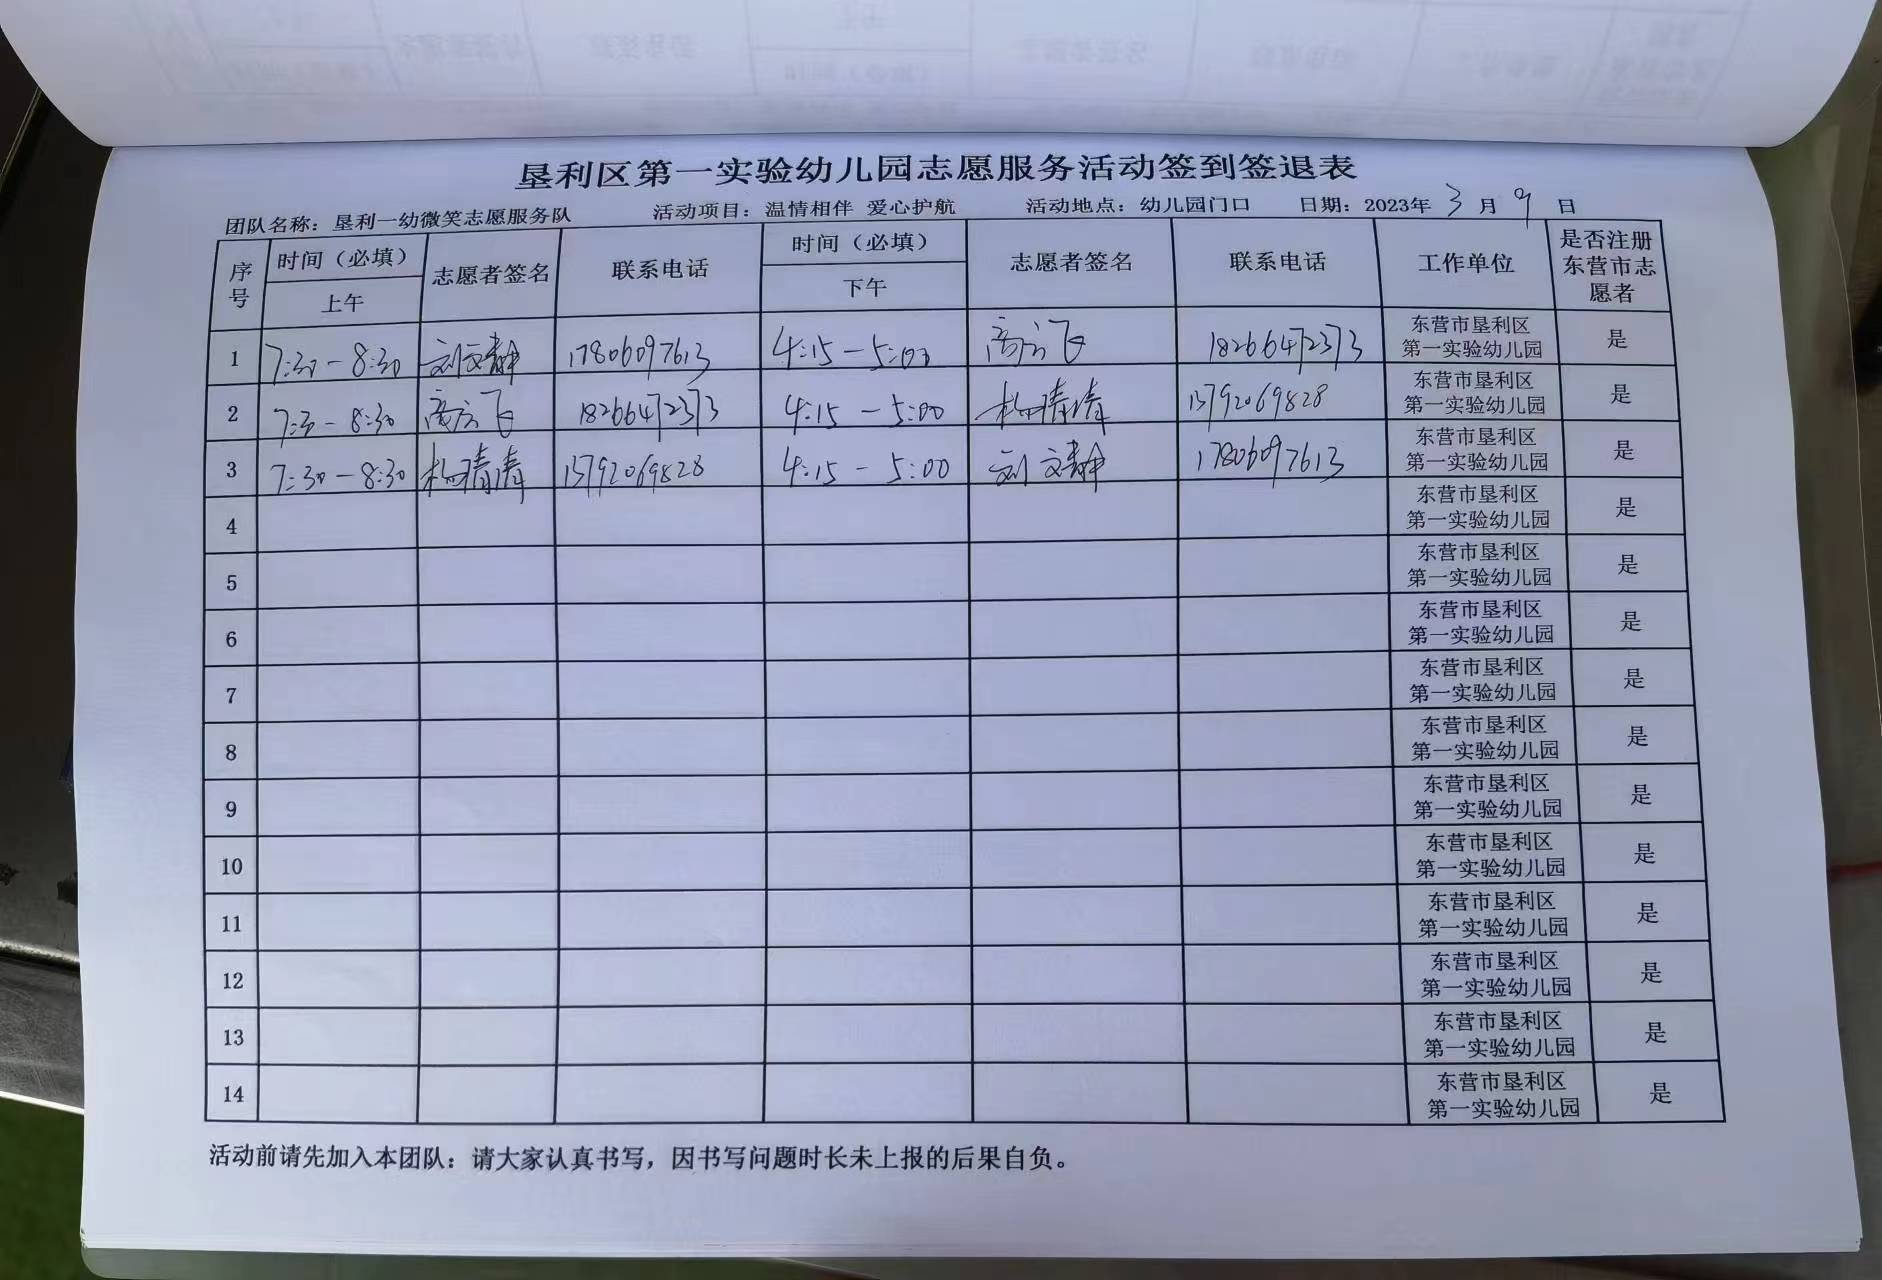 垦利区第一实验幼儿园志愿服务活动签到签退表
团队名称：垦利一幼微笑志愿服务队 活动项目：温情相伴 爱心护航 活动地点：幼儿园门口 日期：2023年 3 月 9 日
序号 时间（必填） 上午 志愿者签名 联系电话 时间（必填） 下午 志愿者签名 联系电话 工作单位 是否注册东营市志愿者
1 7:30-8:30 刘文静 17806097613 4:15-5:00 飞 18266472373 东营市垦利区第一实验幼儿园 是
2 7:30-8:30 飞 18266472373 4:15-5:00 杨清清 15792069828 东营市垦利区第一实验幼儿园 是
3 7:30-8:30 杨清清 15792069828 4:15-5:00 刘文静 17806097613 东营市垦利区第一实验幼儿园 是
4 东营市垦利区第一实验幼儿园 是
5 东营市垦利区第一实验幼儿园 是
6 东营市垦利区第一实验幼儿园 是
7 东营市垦利区第一实验幼儿园 是
8 东营市垦利区第一实验幼儿园 是
9 东营市垦利区第一实验幼儿园 是
10 东营市垦利区第一实验幼儿园 是
11 东营市垦利区第一实验幼儿园 是
12 东营市垦利区第一实验幼儿园 是
13 东营市垦利区第一实验幼儿园 是
14 东营市垦利区第一实验幼儿园 是
活动前请先加入本团队：请大家认真书写，因书写问题时长未上报的后果自负。